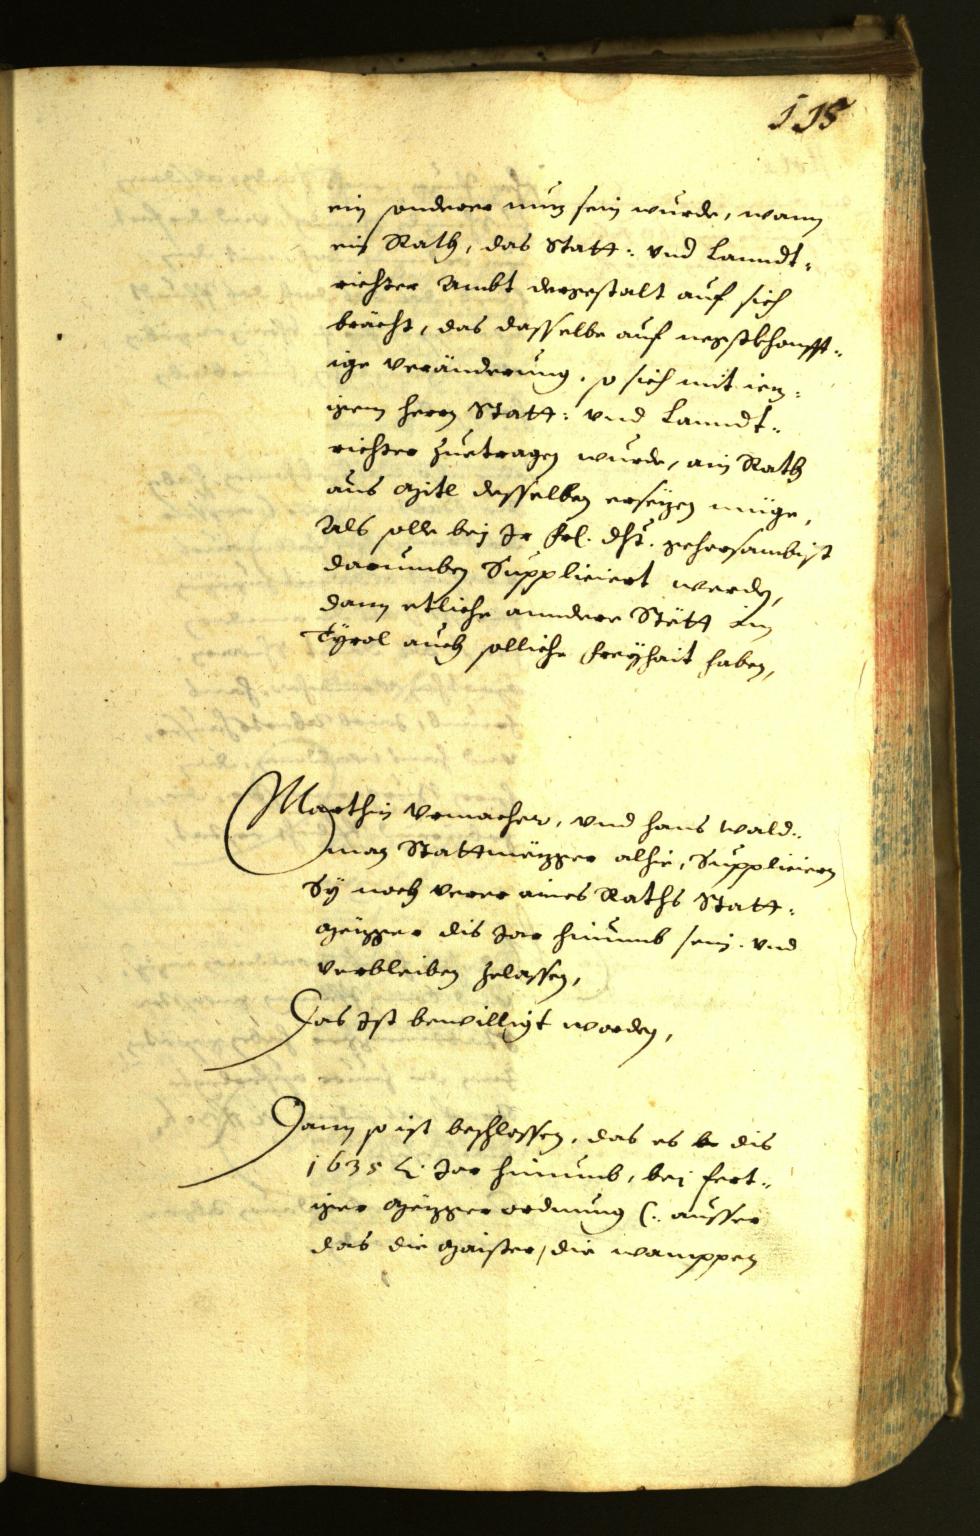 115
ein sonderer nuz sein wurde, wann
ein Rath, das Statt: vnd Lanndt-
richter Ambt dergestalt auf sich
brächt, das dasselbe auf negstkhonfft-
ige veränderung, so sich mit iez-
igem herrn Statt: vnd Lanndt-
richter zuetragen wurde, ain Rath
aus mitl desselben ersezen müge,
Als solle bei Ir frl. dht. gehorsambist
darumben Suppliciert werden,
dann etliche anndere Stätt in
Tÿrol auch solliche freÿhait haben,
Marthin Vrmacher, vnd hans Wald-
man Stattmëzger alhie, Supplicieren
Sÿ noch verer aines Raths Statt-
Mëzger dis Jar hinumb sein vnd
verbleiben zelassen,
Das Ist bewilligt worden,
Dann so ist beschlossen, das es dis
1635 Jar hinumb, bei fert-
iger Mëzger ordnung (: ausser
das die Maister, die wamppen